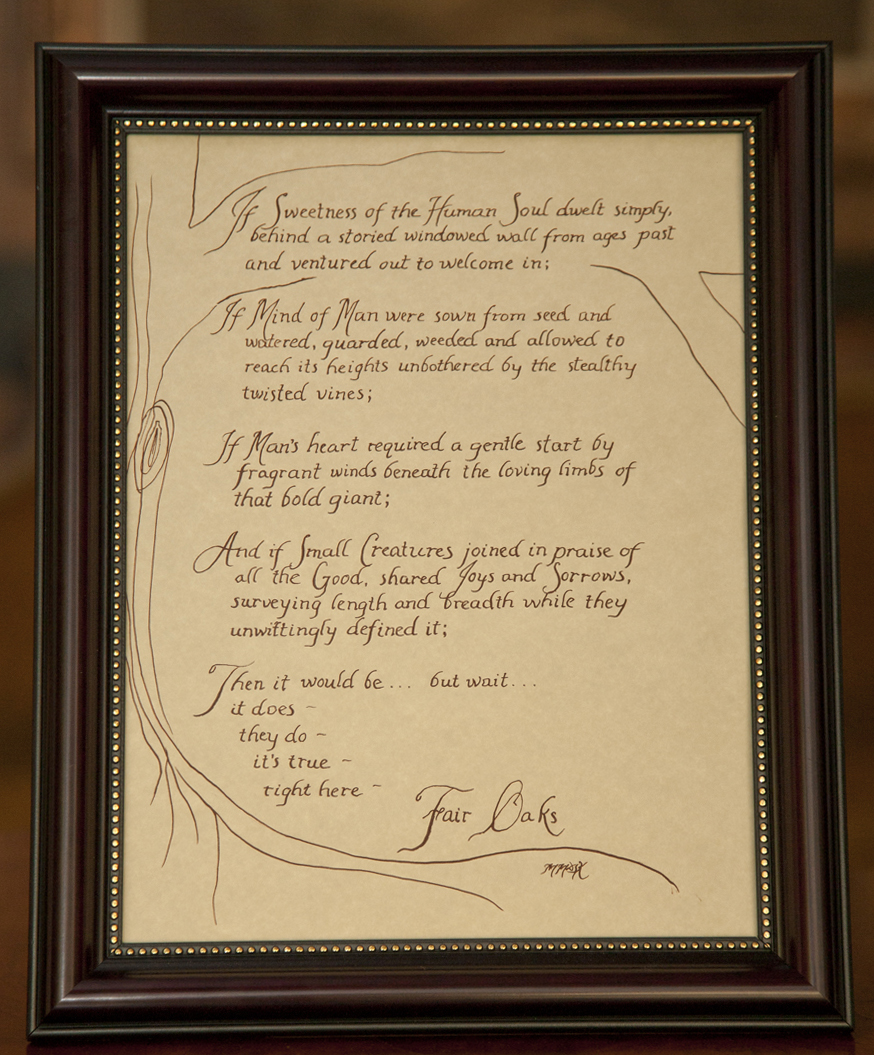 If Sweetness of the Human Soul dwelt simply,
behind a storied windowed wall from ages past
and ventured out to welcome in;
If Mind of Man were sown from seed and
watered, guarded, weeded and allowed to
reach its heights unbothered by the stealthy
twisted vines;
If Man's heart required a gentle start by
fragrant winds beneath the loving limbs of
that bold giant;
And if Small Creatures joined in praise of
all the Good, shared Joys and Sorrows,
surveying length and breadth while they
unwittingly defined it;
Then it would be... but wait...
it does ~
they do ~
it's true ~
right here ~
Fair Oaks